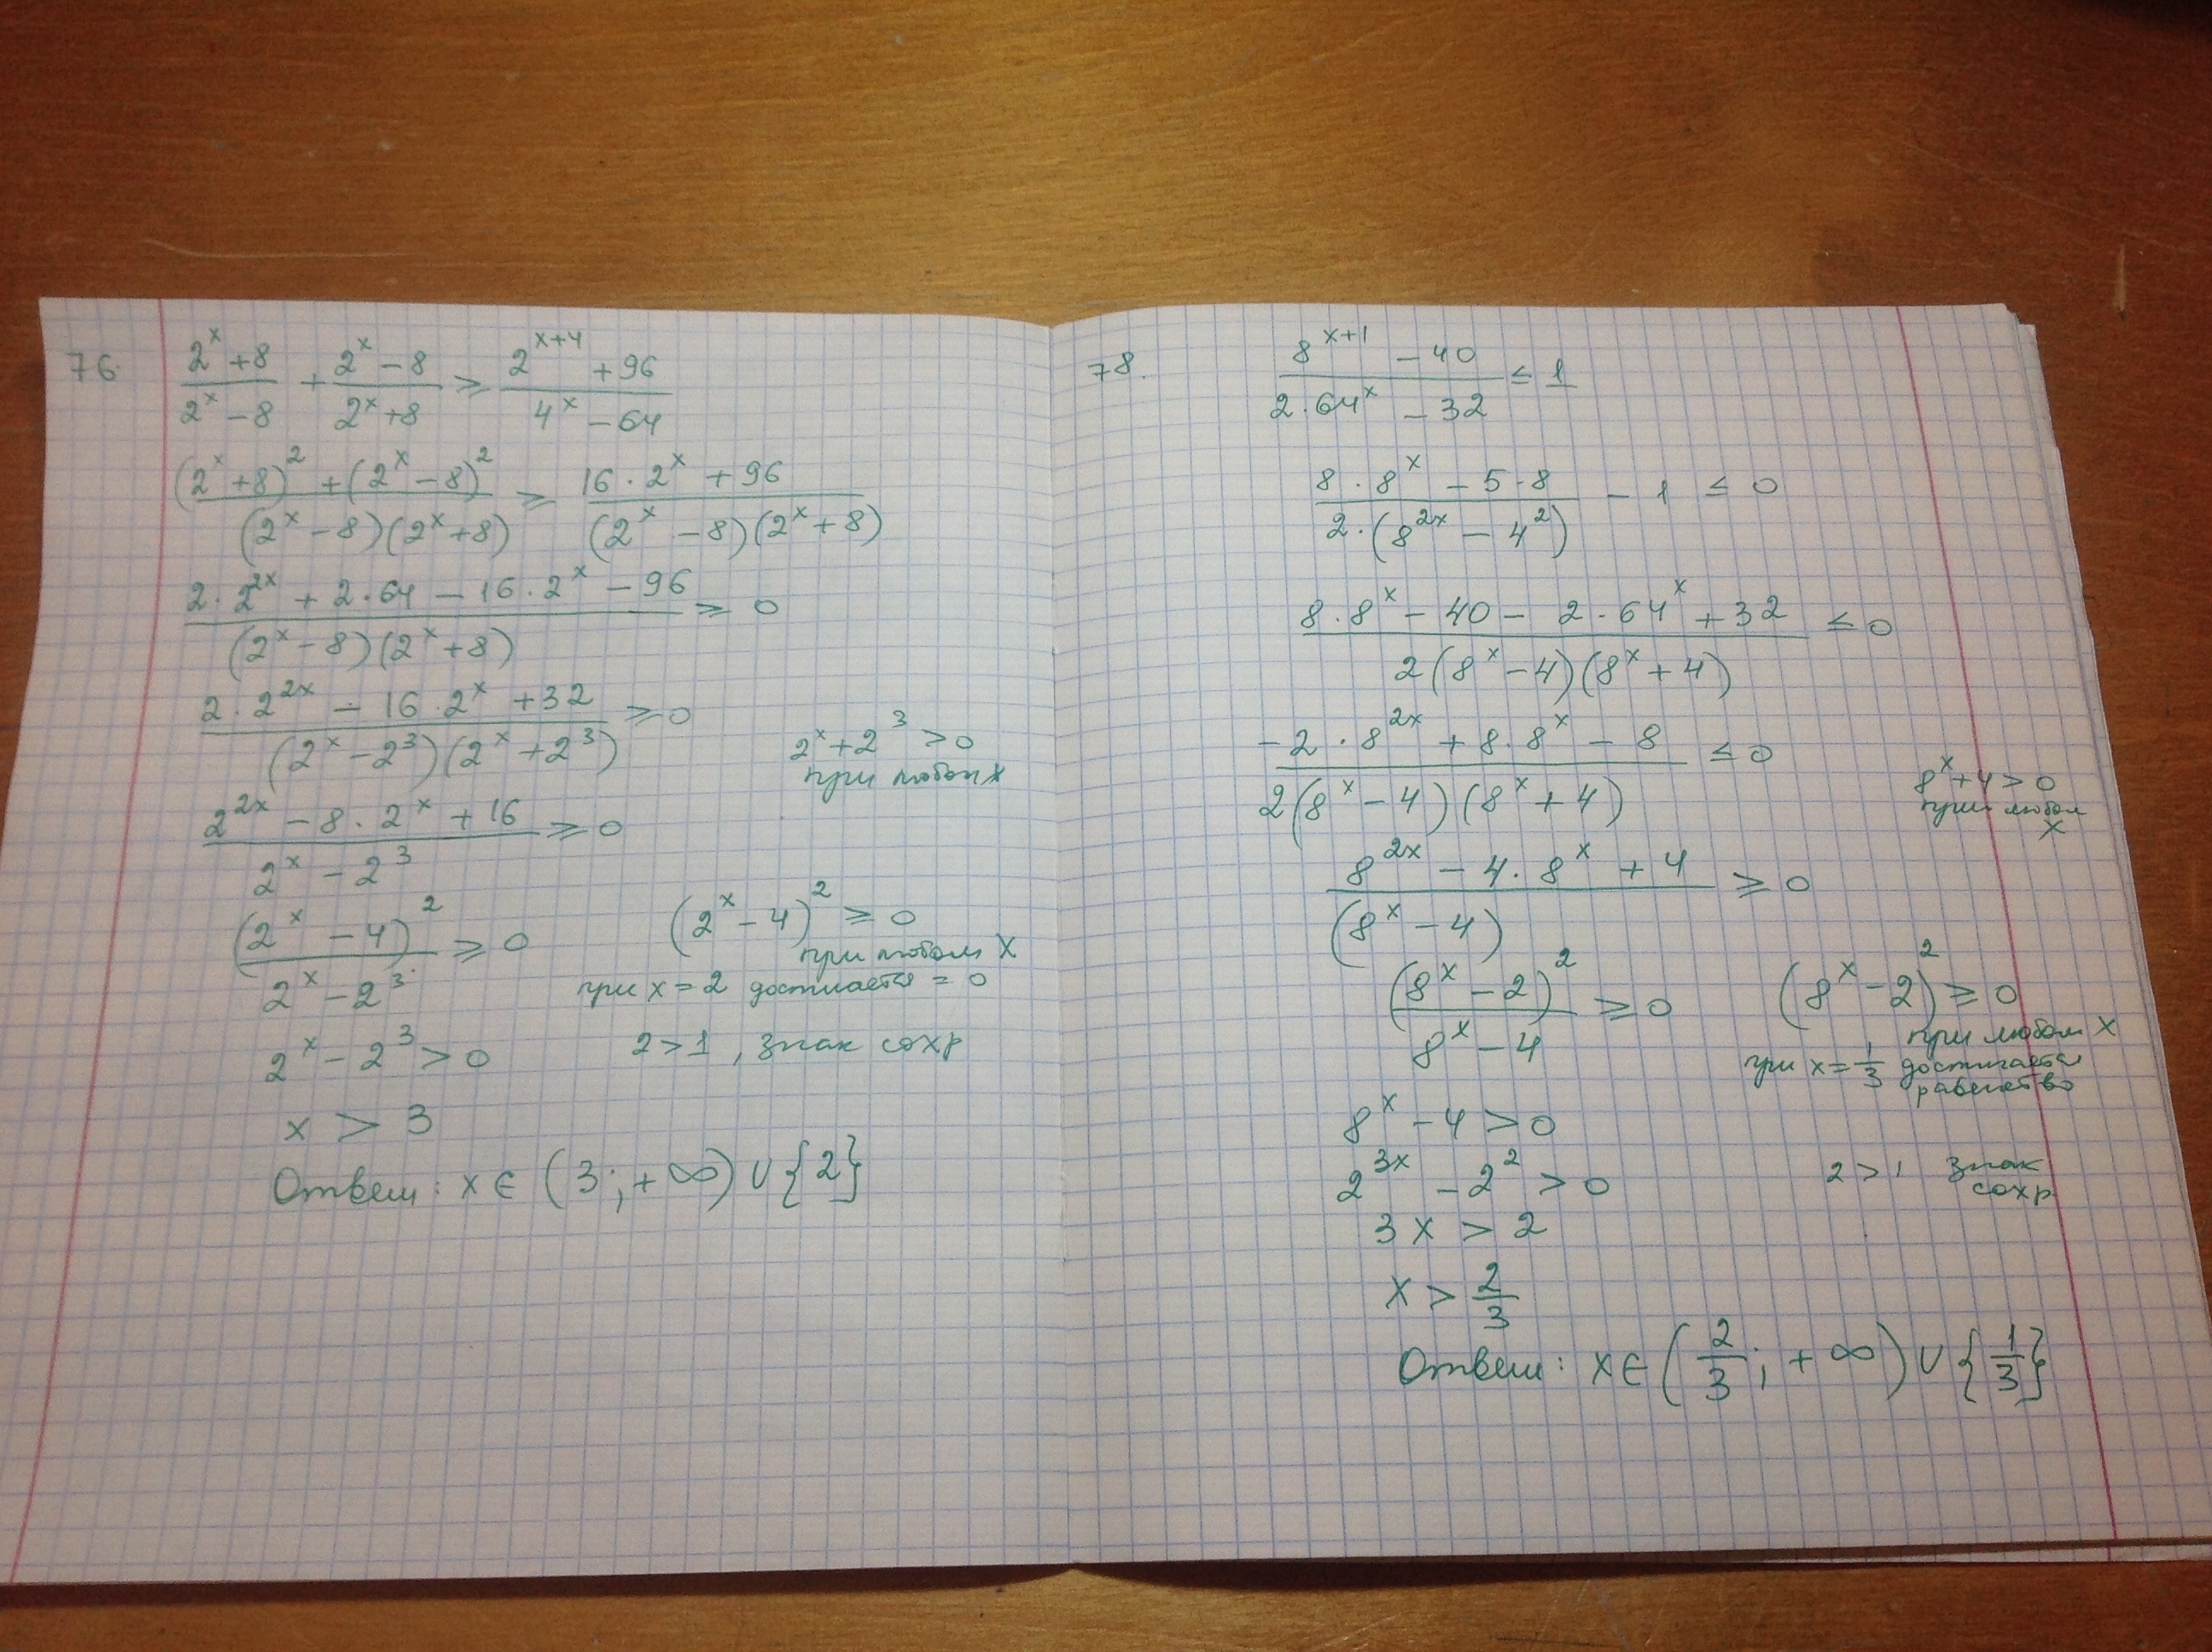 76. (2^x + 8)/(2^x - 8) + (2^x - 8)/(2^x + 8) ≥ (2^(x+4) + 96)/(4^x - 64)
((2^x + 8)^2 + (2^x - 8)^2)/((2^x - 8)(2^x + 8)) ≥ (16 · 2^x + 96)/((2^x - 8)(2^x + 8))
(2 · 2^(2x) + 2 · 64 - 16 · 2^x - 96)/((2^x - 8)(2^x + 8)) ≥ 0
(2 · 2^(2x) - 16 · 2^x + 32)/((2^x - 2^3)(2^x + 2^3)) ≥ 0
2^x + 2^3 > 0
при любом x
(2^(2x) - 8 · 2^x + 16)/(2^x - 2^3) ≥ 0
(2^x - 4)^2/(2^x - 2^3) ≥ 0
(2^x - 4)^2 ≥ 0
при любом x
при x = 2 достигается = 0
2^x - 2^3 > 0
2 > 1, знак сохр
x > 3
Ответ: x ∈ (3; +∞) ∪ {2}
78. (8^(x+1) - 40)/(2 · 64^x - 32) ≤ 1
(8 · 8^x - 5 · 8)/(2 · (8^(2x) - 4^2)) - 1 ≤ 0
(8 · 8^x - 40 - 2 · 64^x + 32)/(2(8^x - 4)(8^x + 4)) ≤ 0
(-2 · 8^(2x) + 8 · 8^x - 8)/(2(8^x - 4)(8^x + 4)) ≤ 0
8^x + 4 > 0
при любом
x
(8^(2x) - 4 · 8^x + 4)/(8^x - 4) ≥ 0
(8^x - 2)^2/(8^x - 4) ≥ 0
(8^x - 2)^2 ≥ 0
при любом x
при x = 1/3 достигается
равенство
8^x - 4 > 0
2^(3x) - 2^2 > 0
2 > 1 знак
сохр
3x > 2
x > 2/3
Ответ: x ∈ (2/3; +∞) ∪ {1/3}